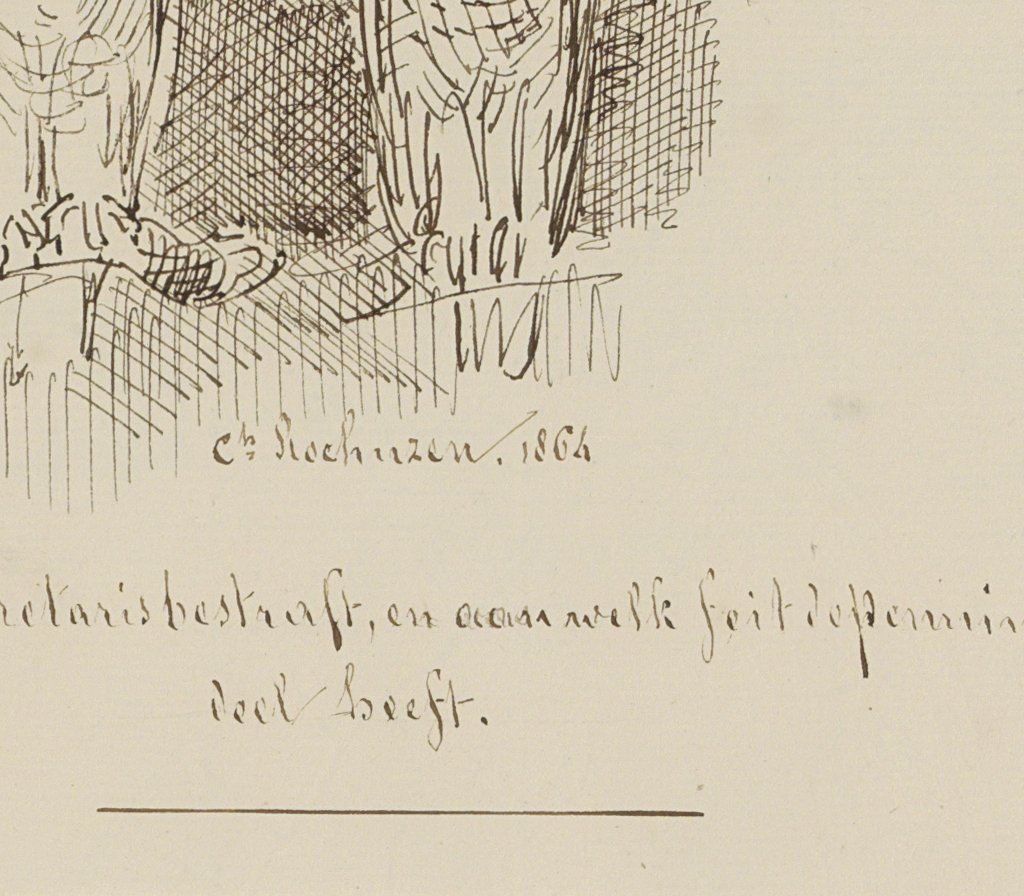 Ch Rochuzen. 1864
retaris bestraft, en aan welk feit de pennin
deel heeft.